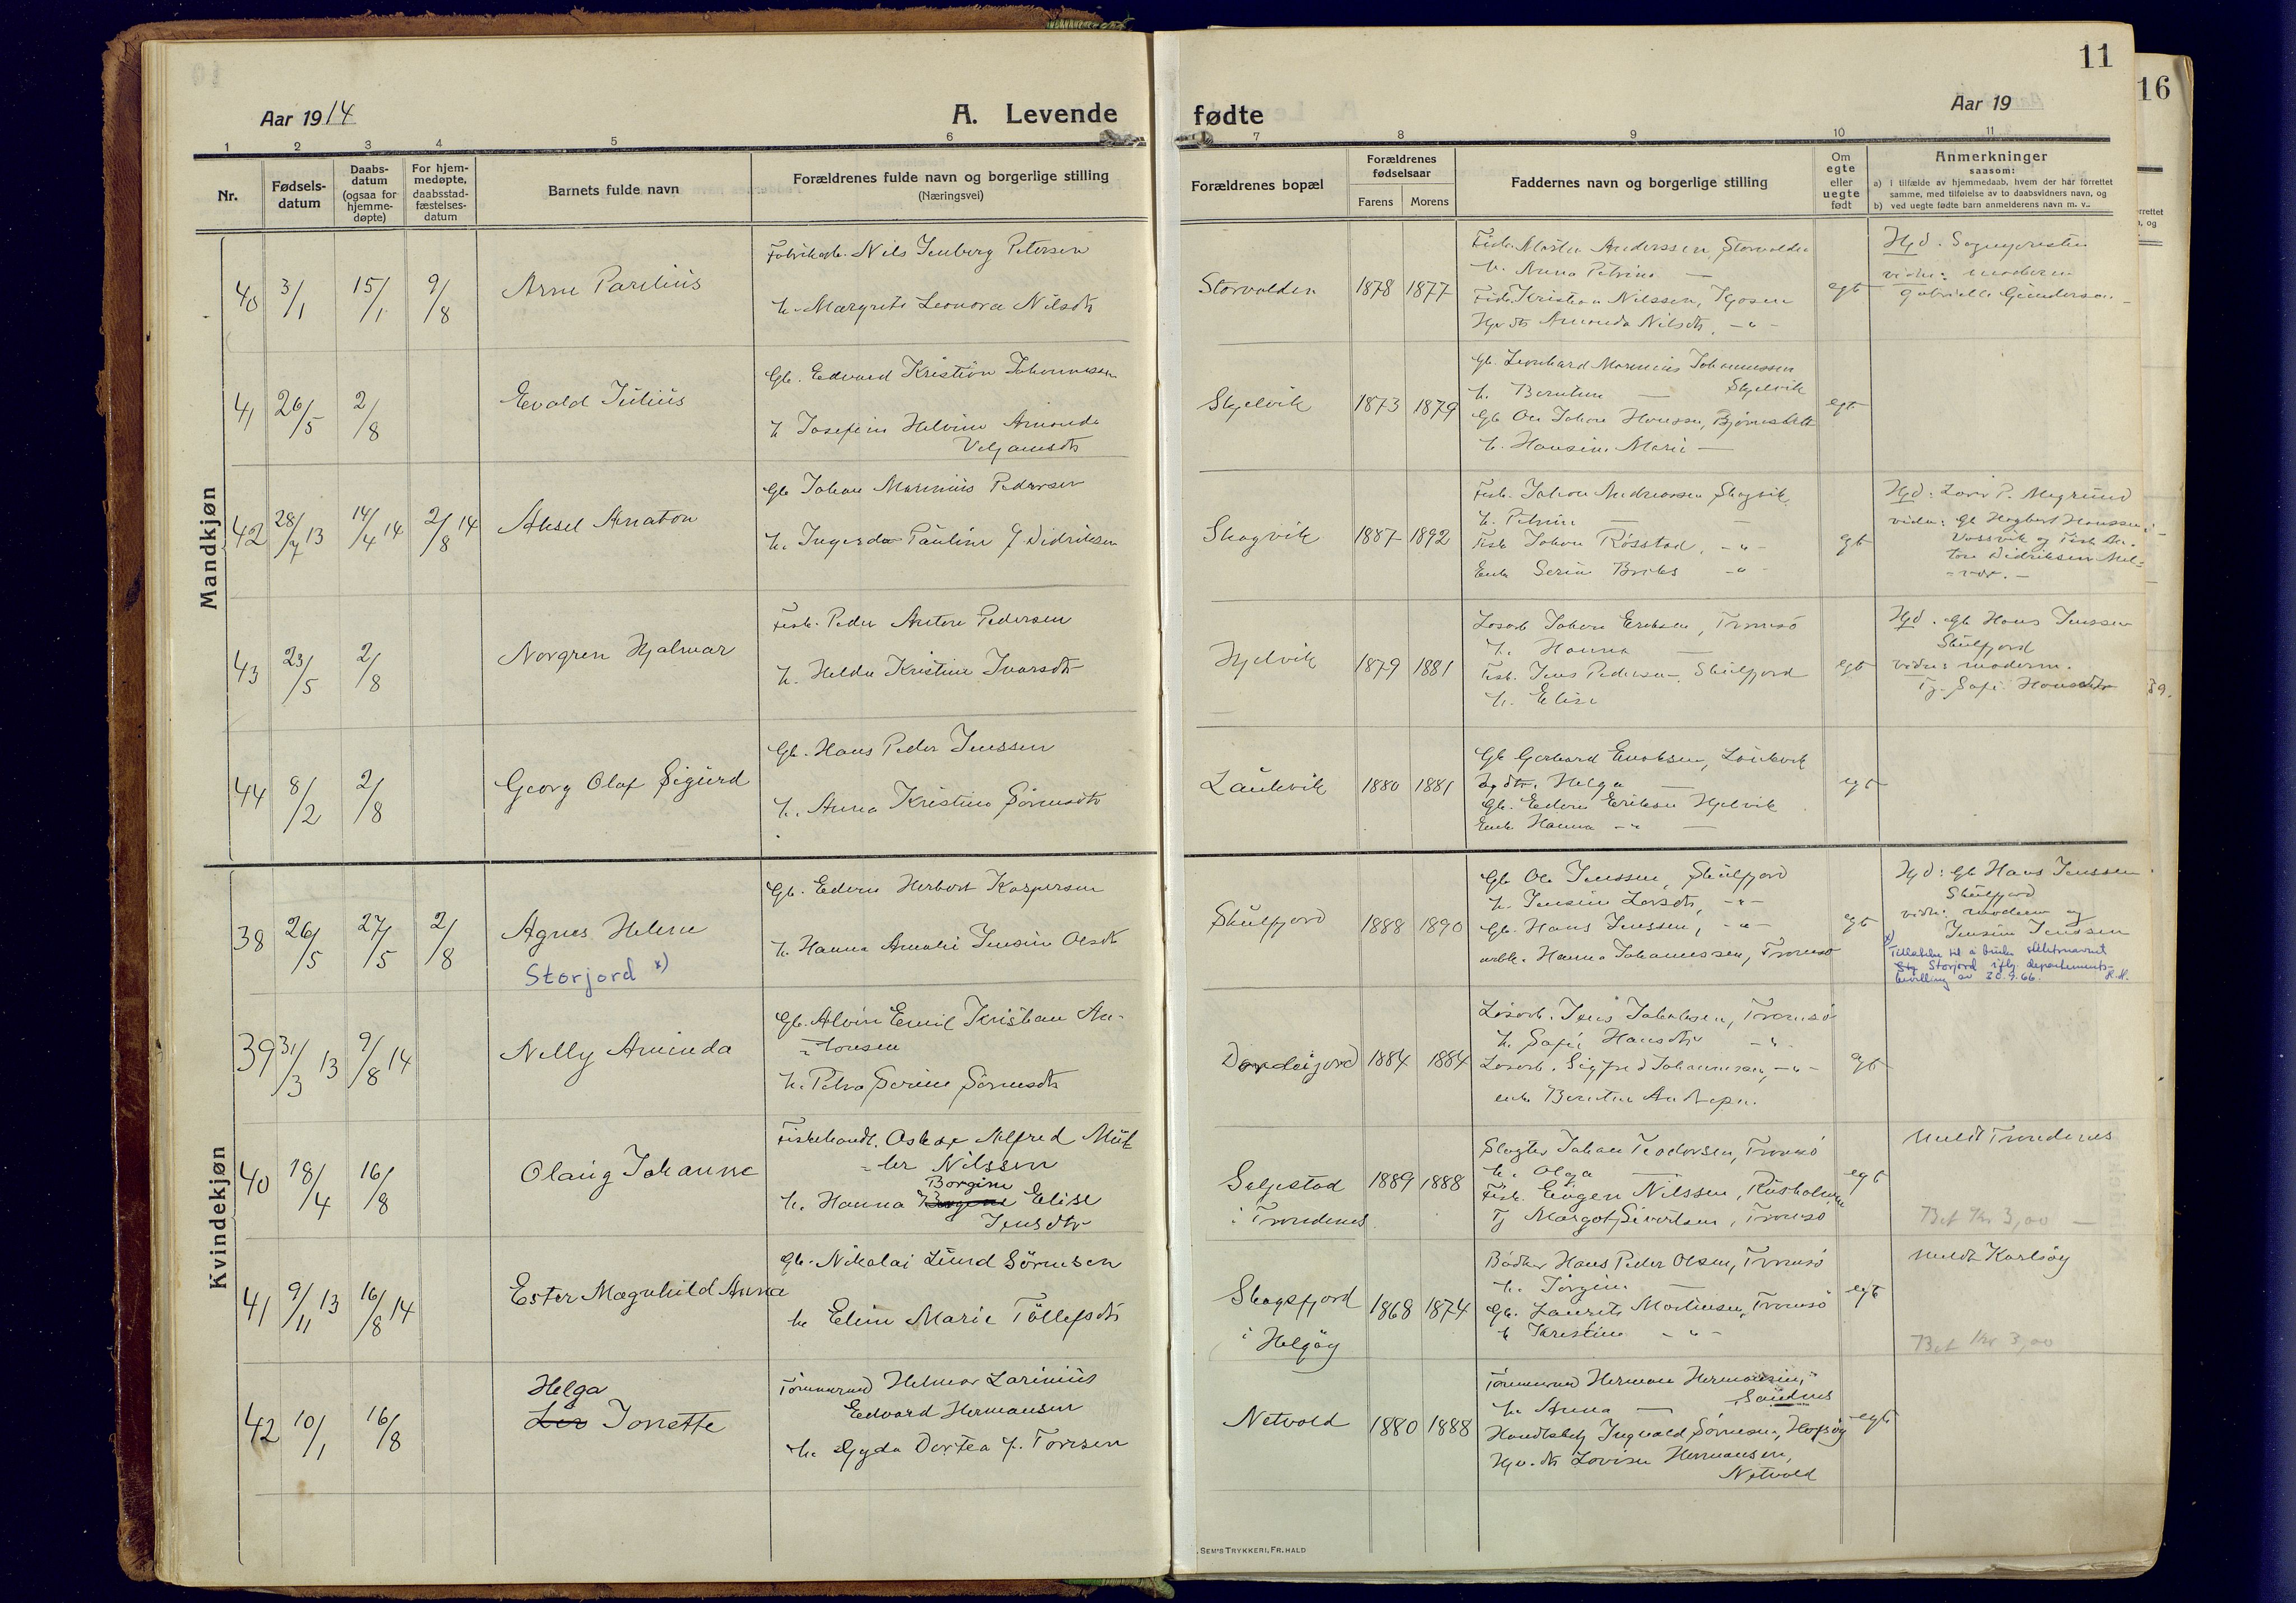 11
16
Aar 1914
A. Levende
fødte
Aar 19
1 2 3 4 5 6 7 8 9 10 11
Nr.
Fødsels-
datum
Daabs-
datum
(ogsaa for
hjemme-
døpte)
For hjem-
medøpte,
daabsstad-
fæstelses-
datum
Barnets fulde navn
Forældrenes fulde navn og borgerlige stilling
(Næringsvei)
Forældrenes bopæl
Forældrenes
fødselsaar
Farens Morens
Faddernes navn og borgerlige stilling
Om
egte
eller
uegte
født
Anmerkninger
saasom:
a) i tilfælde av hjemmedaab, hvem der har forrettet
samme, med tilføielse av to daabsvidners navn, og
b) ved uegte fødte barn anmelderens navn m. v.
Mandkjøn
40 3/1 15/1 9/8
Arne Parelius
Nils Jenberg Petersen
h. Margrete Leonora Nilsdtr
Storvolden
1878 1877
Fisk. Martin Anderssen, Storvolden
h. Anna Petrine —
Fisk. Kristian Nilssen, Kjosen
Amanda Nilsdtr. -"-
egt
Hjd. Sognepresten
vidn: moderen
Gabrielle Gundersen
41 26/5 2/8
Evald Julius
Gb. Edvard Kristian Johannessen
h. Josefine Helvine Amanda
Skjelvik
1873 1879
Gb. Leonhard Marenius Johannessen
h. Berntine — Skjelvik
Gb Ole Johan Hanssen,
h. Hansine Marie —
egt
42 28/7 13 14/4 14 2/8 14
Aksel Anaton
Gb Johan Marenius Pedersen
h. Ingerda Pauline f. Didriksen
Skogvik
1887 1892
Fisk. Johan Andreassen Skogvik
h. Petrine —
Fisk Johan Røsstad, -"-
Enke Serine Briks -"-
egt
Hjd: Lars P. Megrund
vidn: Gb Hagbart Hanssen,
Vassvik og Fisk An-
ton Didriksen Mel-
vær. —
43 23/5 2/8
Norgren Hjalmar
Fisk. Peder Anton Pedersen
h. Helda Kristine Ivarsdtr
Hjelvik
1879 1881
Løsarb Johan Eriksen, Tromsø
h. Hanna —
Fisk. Jens Pedersen, Skulfjord
h. Elise
egt
Hjd. Gb Hans Jenssen
Skulfjord
vidn: moderen.
Tj. Sofie Hansdtr
44 8/2 2/8
Georg Olaf Sigurd
Gb. Hans Peder Jenssen
h. Anna Kristine Sørensdtr
Laukvik
1880 1881
Gb Gerhard Enoksen, Laukvik
Helga —
Gb. Edvin Eriksen Hjelvik
Enk. Hanna -"- —
egt
Kvindekjøn
38 26/5 27/5 2/8
Agnes Helene
Storjord x)
Gb. Edvin Herbert Kaspersen
h. Hanna Amalie Jensine Olsdtr
Skulfjord
1888 1890
Gb Ole Jenssen, Skulfjord
h. Jensine Larsdtr, -"-
Gb. Hans Jenssen, -"-
Hanna Johannessen, Tromsø
egt
Hjd: Gb Hans Jenssen
Skulfjord
vidn: moderen og
Jensine Jenssen
x)
Tillatelse til å bruke slektsnavnet
Storjord iflg. departements-
bevilling av 20.9.66. H.H.
39 31/3 13 9/8 14
Nelly Aminda
Gb. Alvin Emil Kristian An-
tonsen
h. Petra Serine Sørensdtr
1884 1884
Løsarb. Jens Jakobsen, Tromsø
h. Sofie Hansdtr -"-
Løsarb. Sigfred Johannessen, -"-
enk. Berntine
egt
40 18/4 16/8
Olaug Johanne
Fiskehandl. Oskar Alfred Mül-
ler Nilssen
Borgine
h. Hanna Elise
Jensdtr
Seljestad
i Trondenes
1889 1888
Slagter Johan Teodorsen, Tromsø
h. Olga —
Fisk. Eugen Nilssen, Rusholmen
Tj Margot Sivertsen, Tromsø
egt
Meldt Trondenes
Bet Kr 3,00 —
41 9/11 13 16/8 14
Ester Magnhild Anna
Gb. Nikolai Lund Sørensen
h. Eline Marie Tollefsdtr
Skogsfjord
i Helgøy
1868 1874
Bødker Hans Peder Olsen, Tromsø
h. Jørgine —
Gb. Laurits Martinsen, Tromsø
h Kristine -"-
egt
Meldt Karlsøy
Bet Kr 3,00
42 10/1 16/8
Helga
Jonette
Tømmermd Helmer Larinius
Edvard Hermansen
h. Gyda Dortea f. Torresen
Netvold
1880 1888
Tømmermd Herman Hermansen,
h. Anna — Sandnes
Handlsbetj Ingvald Sørensen,
Lovise Hermansen,
Netvold
egt
SEM'S TRYKKERI, FR. HALD